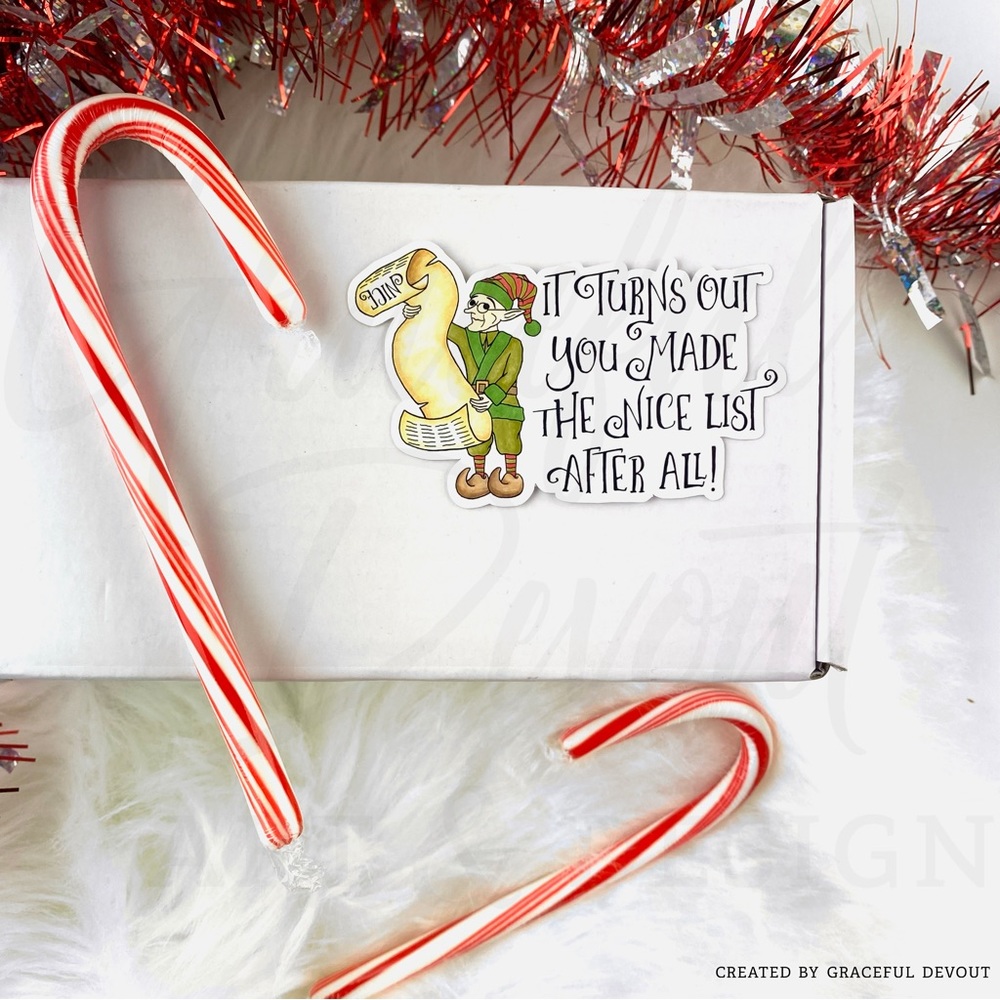 NICE
IT TURNS OUT
YOU MADE
THE NICE LIST
AFTER ALL!
Graceful
Devout
ART & DESIGN
CREATED BY GRACEFUL DEVOUT